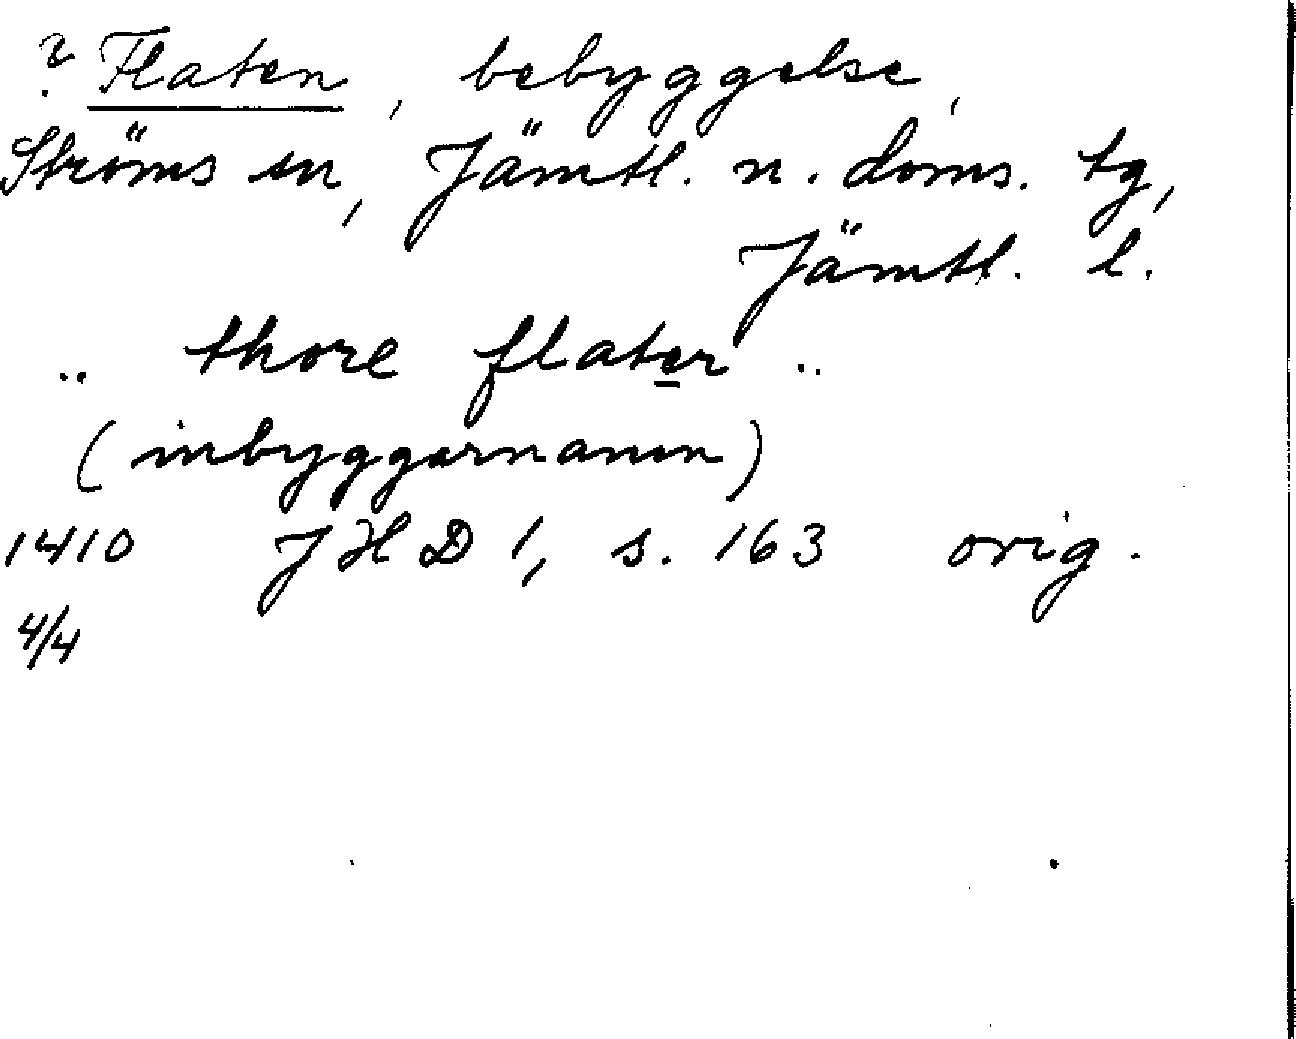 ? Flaten, bebyggelse,
Ströms sn, Jämtl. n. doms. tg,
Jämtl. l.
.. thore flater ..
(inbyggarnamn)
1410 JHD 1, s. 163 orig.
4/4